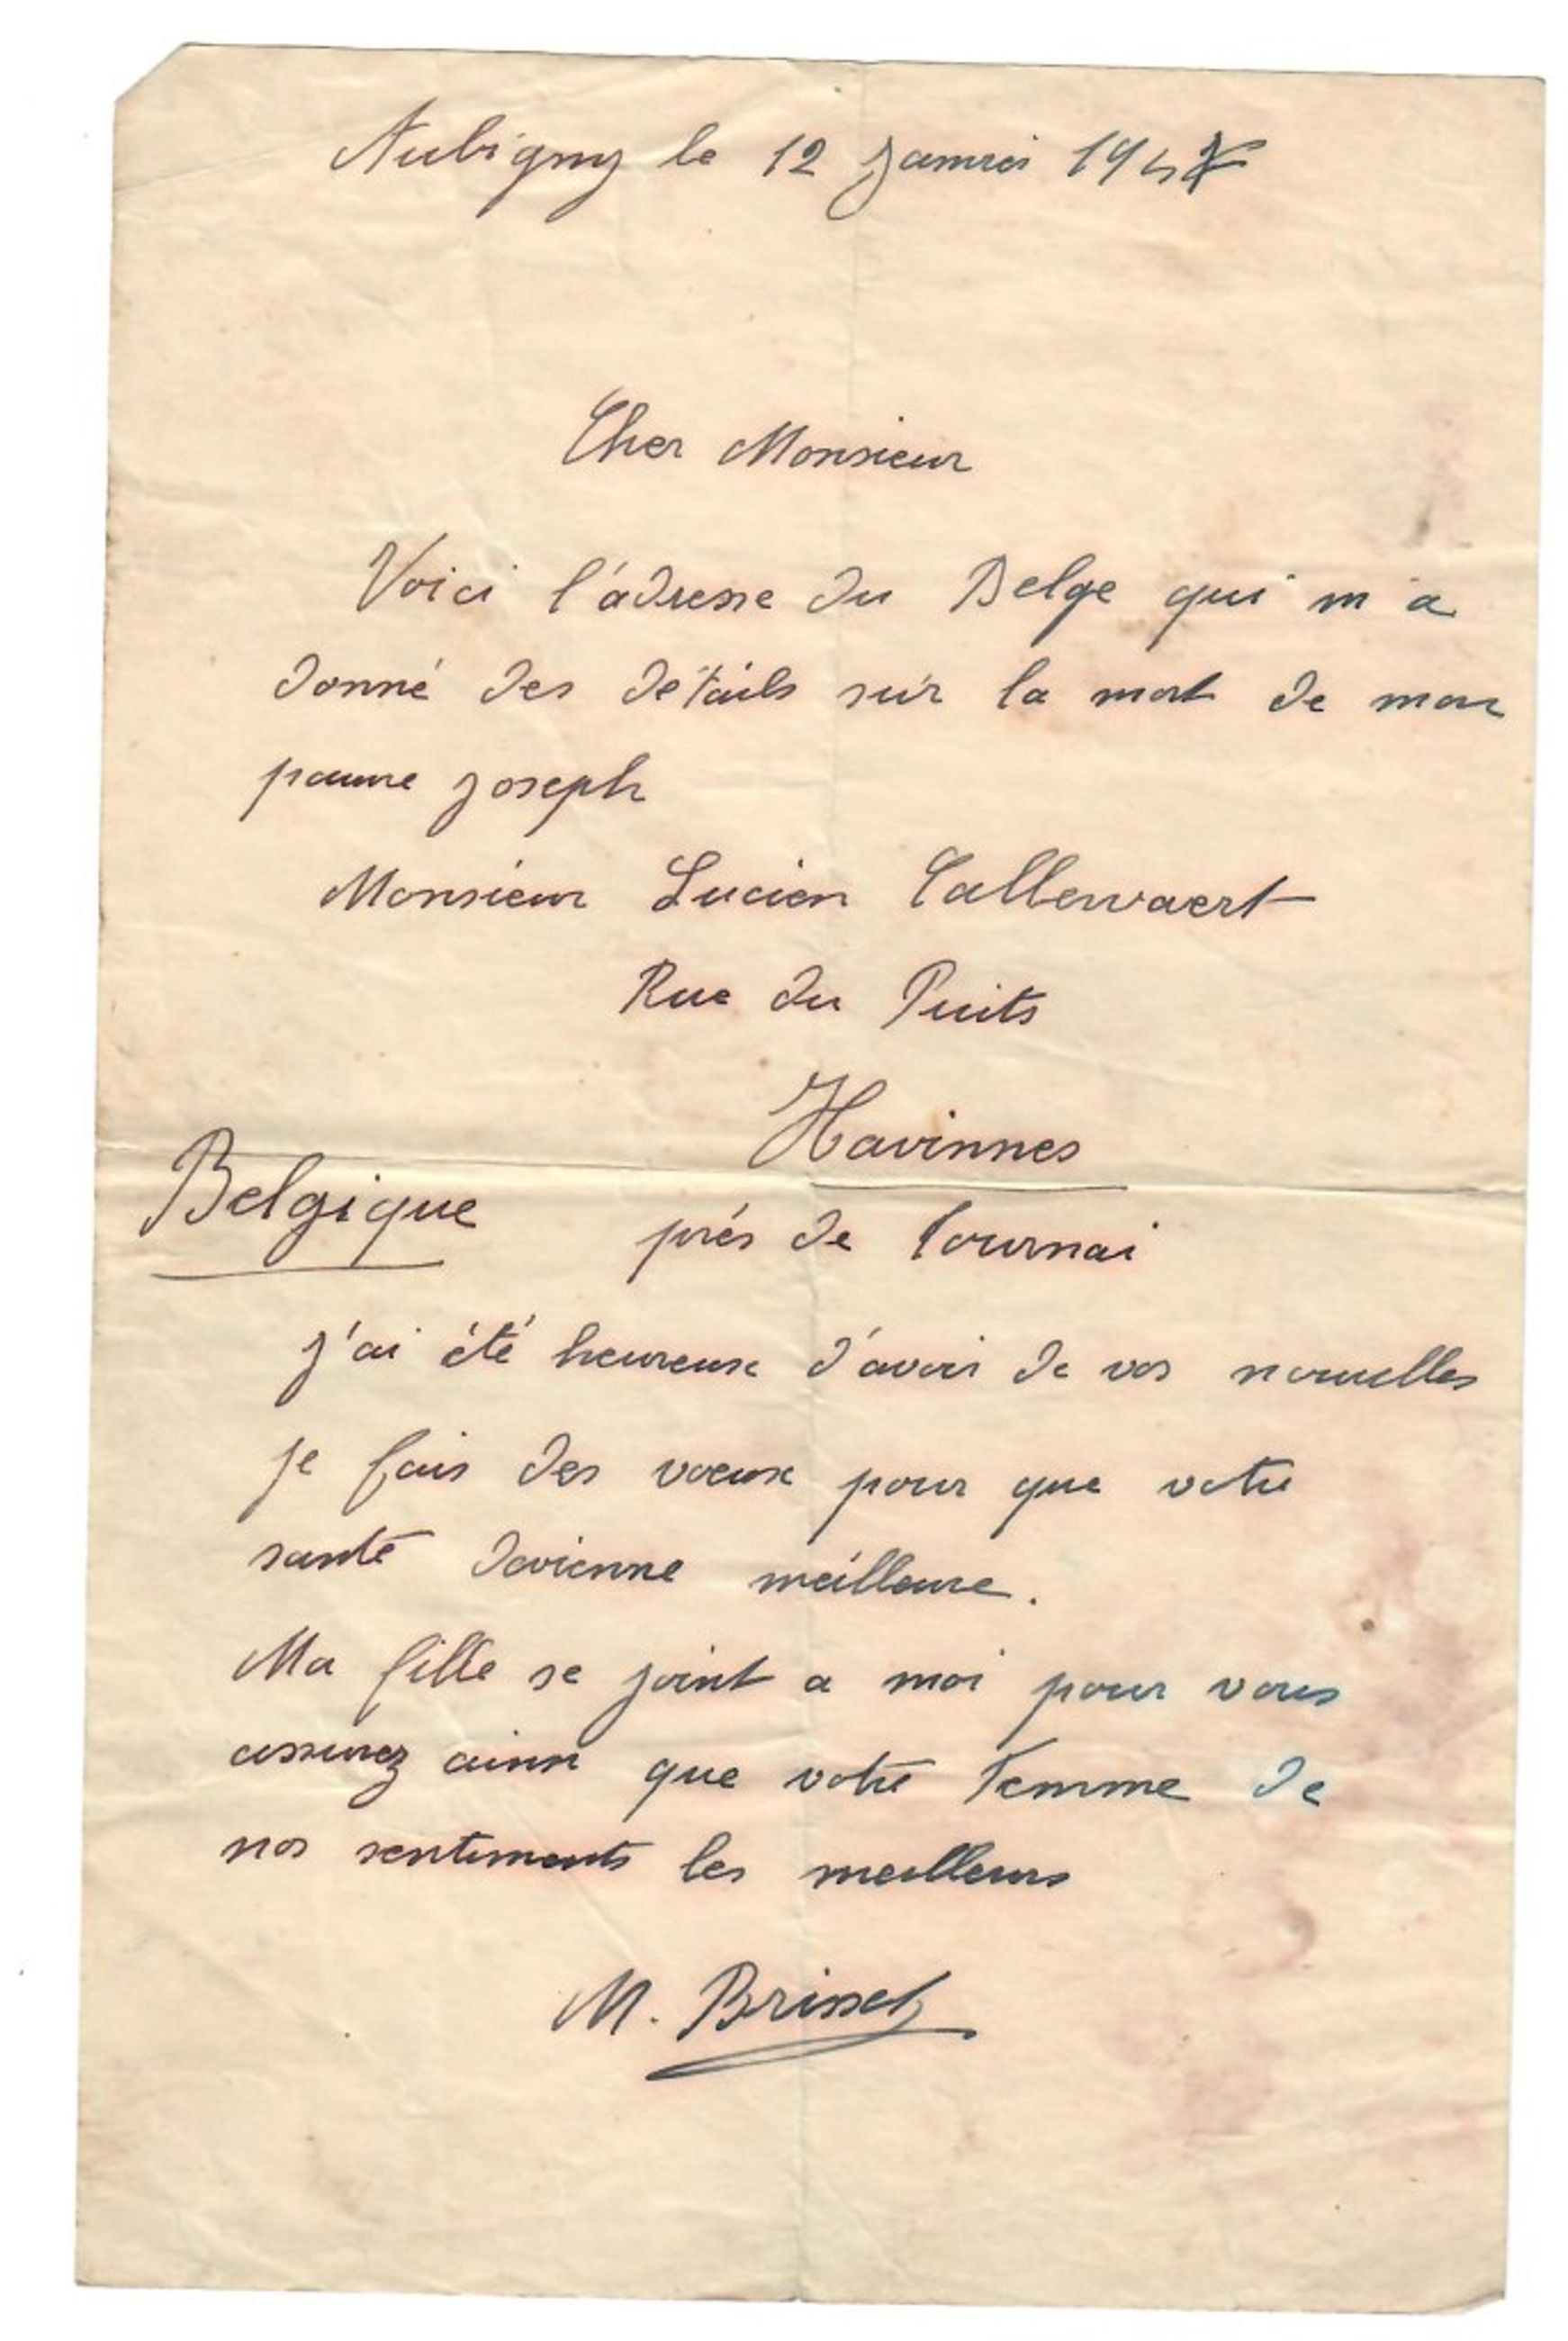 Aubigny le 12 Janvier 1947
Cher Monsieur
Voici l'adresse du Belge qui m'a
donné des détails sur la mort de mon
pauvre Joseph
Monsieur Lucien Callewaert
Rue du Puits
Havinnes
Belgique près de Tournai
J'ai été heureuse d'avoir de vos nouvelles
je fais des voeux pour que votre
santé devienne meilleure.
Ma fille se joint a moi pour vous
assurez ainsi que votre femme de
nos sentiments les meilleurs
M. Brisset